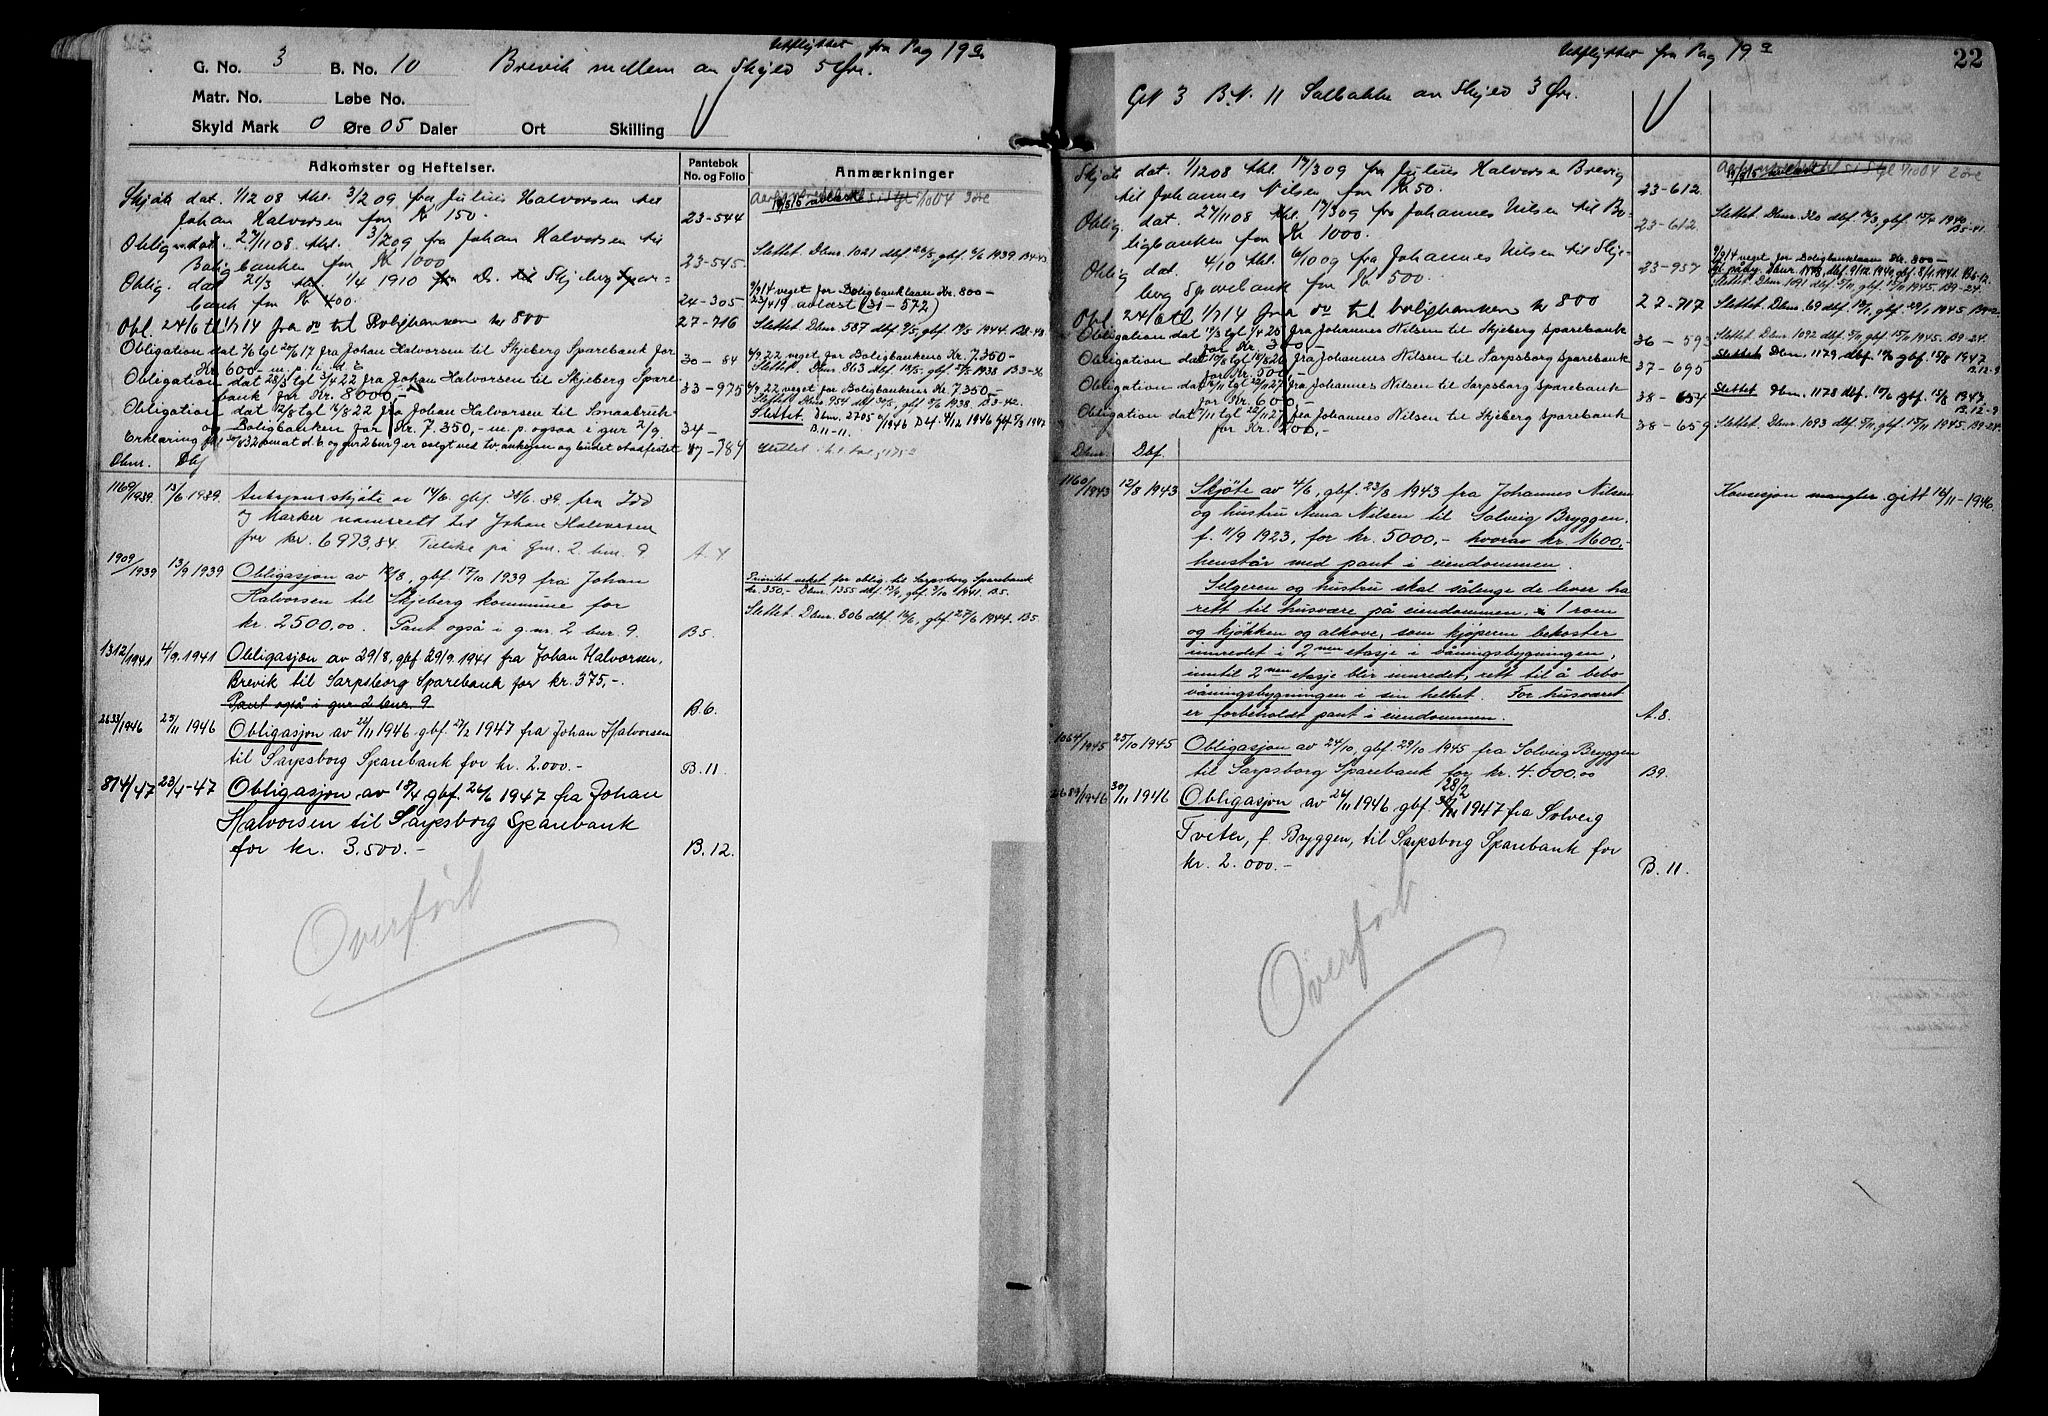 Utflyttet fra Pag 19a
G. No. 3 B. No. 10 Brevik mellem av Skyld 5 Øre.
Matr. No. Løbe No.
Skyld Mark 0 Øre 05 Daler Ort Skilling
Adkomster og Heftelser. Pantebok No. og Folio Anmærkninger
Skjøte dat. 1/12 08 thl. 3/2 09 fra Julius Halvorsen til
Johan Halvorsen for Kr 150. 23-544
Oblig. dat. 27/11 08 thl. 3/2 09 fra Johan Halvorsen til
Boligbanken for Kr 1000 23-545 Slettet Dbnr. 1021
Oblig. dat 21/3 thl. 1/4 1910 fra Ds. til Skjeberg Spare-
bank for Kr 400. 24-305 9/9 14 veget for Boligbanklaan Kr. 800-
23/4 19 avlæst (31-572)
Obl. 24/6 tl 1/7 14 fra do til Boligbanken kr 800 27-716 Slettet Dbnr. 587
Obligation dat 7/6 tgl 20/6 17 fra Johan Halvorsen til Skjeberg Sparebank for
Kr. 600- 30-84 veget for Boligbankens Kr. 7.350-
Slettet. Dbnr. 863
Obligation dat 28/3 tgl 3/4 22 fra Johan Halvorsen til Skjeberg Spare-
bank for Kr. 8000,- 33-975 22 veget for Boligbankens Kr. 7.350,-
Slettet Dbnr 954 1938 B3-42.
Obligation dat 12/8 tgl 14/8 22 fra Johan Halvorsen til Smaabruk-
og Boligbanken for Kr. 7.350,- m. p. ogsaa i gnr 2/9. 34- Slettet Dbnr. 2705
B.11-11.
Dbnr. Dbf
1169/1939. 13/6 1939. Auksjonsskjøte av 14/6. gbf. 28/6. 39. fra Idd
og Marker namsrett til Johan Halvorsen
for kr. 6973,84. Tillike på Gnr. 2 bnr. 9 A. 4
1909/1939 13/9 1939 Obligasjon av 12/8, gbf. 17/10 1939 fra Johan
Halvorsen til Skjeberg kommune for
kr. 2500,00. Pant også i g.nr. 2 bnr. 9. B5.
Prioritet veket for oblig. til Sarpsborg Sparebank
kr. 350,- Dbnr. 1355
Slettet Dbnr. 806 1944. B5.
1312/1941 4/9. 1941 Obligasjon av 29/8, gbf 29/9. 1941 fra Johan Halvorsen,
Brevik til Sarpsborg Sparebank for kr. 375,-.
Pant også i gnr 2 bnr. 9 B6.
2633/1946 23/11 1946 Obligasjon av 22/11 1946 gbf. 27/2 1947 fra Johan Halvorsen
til Sarpsborg Sparebank for kr. 2.000.- B.11.
874/47 23/4-47 Obligasjon av 18/4 gbf. 26/6 1947 fra Johan
Halvorsen til Sarpsborg Sparebank
for kr. 3.500.- B.12.
Overført
Utflyttet fra Pag 19a
22
GN 3 B.N. 11 Solbakke av Skyld 3 Øre.
Skjøte dat. 1/12 08 thl. 17/3 09 fra Julius Halvorsen Brevig
til Johannes Nilsen for Kr 50. 23-612
Oblig. dat. 27/11 08 thl. 17/3 09 fra Johannes Nilsen til Bo-
ligbanken for Kr 1000. 23-612.
Oblig dat. 4/10 thl. 6/10 09 fra Johannes Nilsen til Skje-
berg Sparebank for Kr 500. 23-957
9/9 14 veget for Boligbanklaan Kr. 800-
Slettet Dbnr. 1091 1945. B9-24.
Obl. 24/6 tl 1/7 14 fra do til boligbanken kr 800 27-717 Slettet. Dbnr. 69
Obligation dat 17/3 tgl 1/4 20 fra Johannes Nilsen til Skjeberg Sparebank
for Kr. 300- 36-593 Slettet Dbnr. 1092 1945. B9-24.
Obligation dat 10/8 tgl 14/8 26 fra Johannes Nilsen til Sarpsborg Sparebank
for Kr. 500 37-690 Slettet Dbnr. 1179 1947
B.12-9
Obligation dat 12/11 tgl 22/11 27 fra Johannes Nilsen til Sarpsborg Sparebank
for Kr. 600.- 38-657 Slettet Dbnr. 1178 1947.
B.12-9
Obligation dat 7/11 tgl 22/11 27 fra Johannes Nilsen til Skjeberg Sparebank
for Kr. 200,- 38-659 Slettet Dbnr. 1093 1945. B9-24.
Dbnr. Dbf.
1160/1943 12/8 1943 Skjøte av 4/6, gbf. 23/8 1943 fra Johannes Nilsen Konsesjon mangler gitt 16/11-1946
og hustru Anna Nilsen til Solveig Bryggen,
f. 11/9 1923, for kr. 5000,- hvorav kr. 1600,-
henstår med pant i eiendommen.
Selgeren og hustru skal sålenge de lever ha
rett til husvære på eiendommen, 1 rom
og kjøkken og alkove, som kjøperen bekoster
innredet i 2nen etasje i våningsbygningen,
inntil 2nen etasje blir innredet, rett til å bebo
våningsbygningen i sin helhet. For husværet
er forbeholdt pant i eiendommen. A.8.
1064/1945 25/10 1945 Obligasjon av 24/10, gbf 29/10 1945 fra Solveig Bryggen
til Sarpsborg Sparebank for kr. 4.000.00 B9.
2689/1946 30/11 1946 Obligasjon av 26/11 1946 gbf. 28/2 1947 fra Solveig
Tveter, f. Bryggen, til Sarpsborg Sparebank for
kr. 2.000.- B.11.
Overført